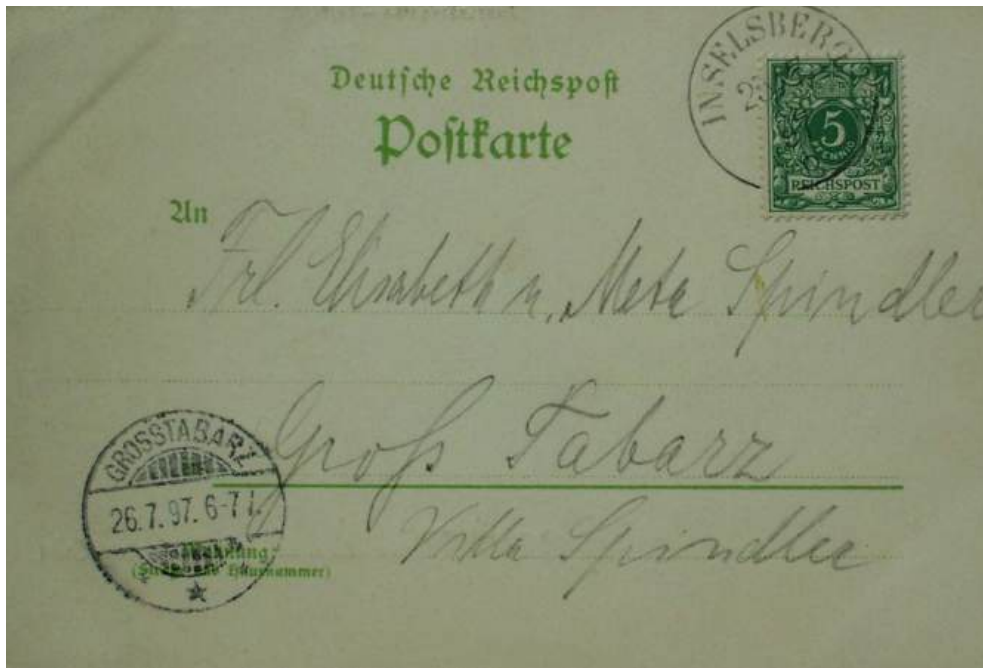 Deutsche Reichspost
Postkarte
INSELSBERG
5
PFENNIG
REICHSPOST
An
Frl. Elisabeth u. Meta Spindler
Groß Tabarz
GROSSTABARZ
26.7.97. 6-7
Villa Spindler
Wohnung
(Straße und Hausnummer)